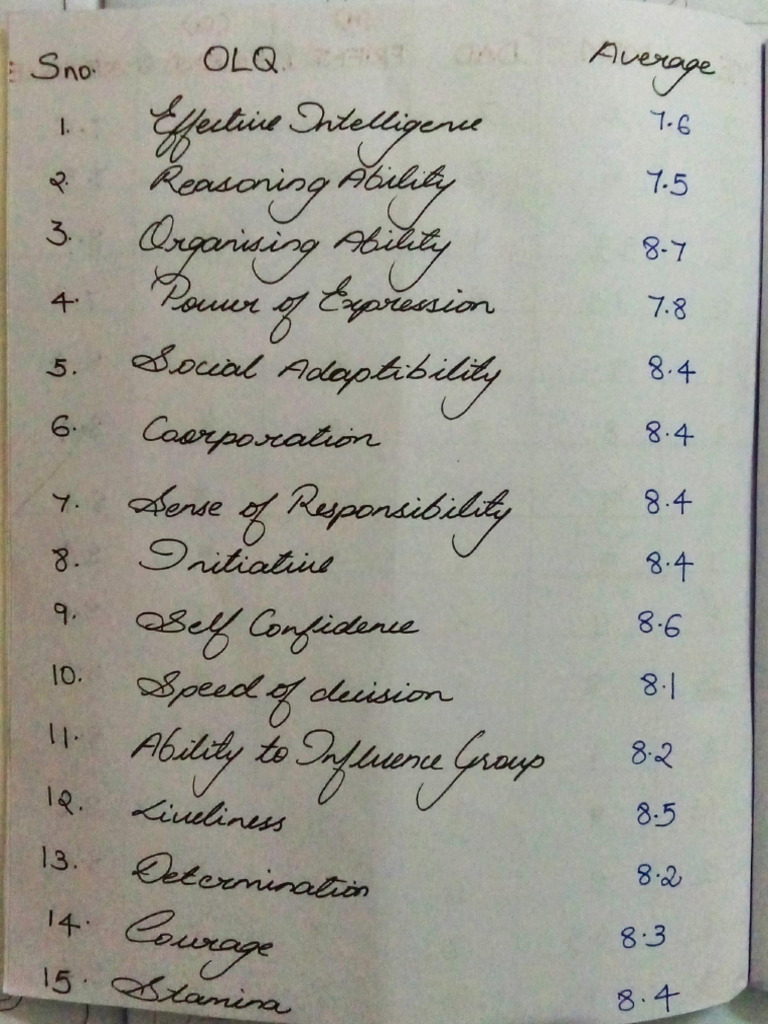 Sno. OLQ Average
1. Effective Intelligence 7.6
2. Reasoning Ability 7.5
3. Organising Ability 8.7
4. Power of Expression 7.8
5. Social Adaptibility 8.4
6. Coorporation 8.4
7. Sense of Responsibility 8.4
8. Initiative 8.4
9. Self Confidence 8.6
10. Speed of decision 8.1
11. Ability to Influence Group 8.2
12. Liveliness 8.5
13. Determination 8.2
14. Courage 8.3
15. Stamina 8.4